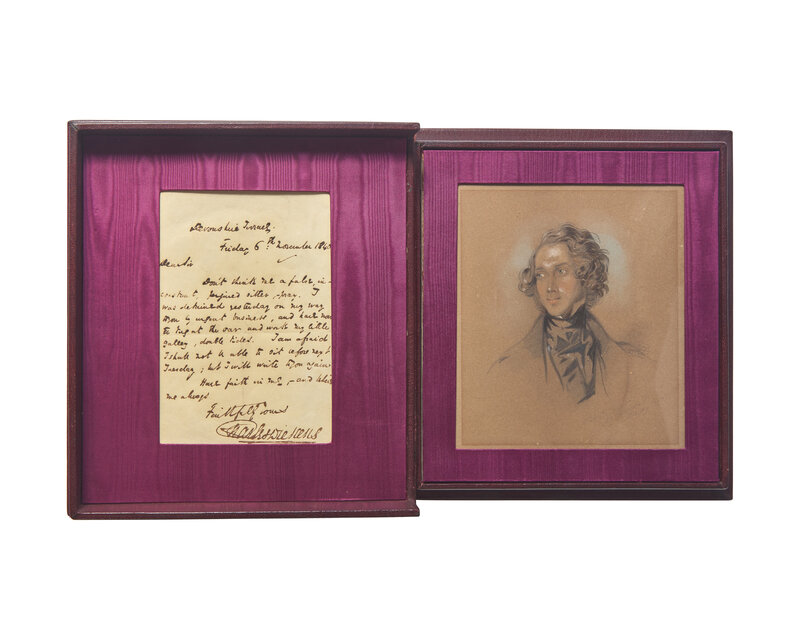 Devonshire Terrace,
Friday 6th November 1840
Dear Sir
Don't think me a false, in-
constant, perjured sitter, pray. I
was detained yesterday on my way
upon by urgent business, and have now
to tug at the oar and work my little
galley, double tides. I am afraid
I shall not be able to sit before next
Tuesday; but I will write you again
Have faith in me, and believe
me always
Faithfully Yours
Charles Dickens